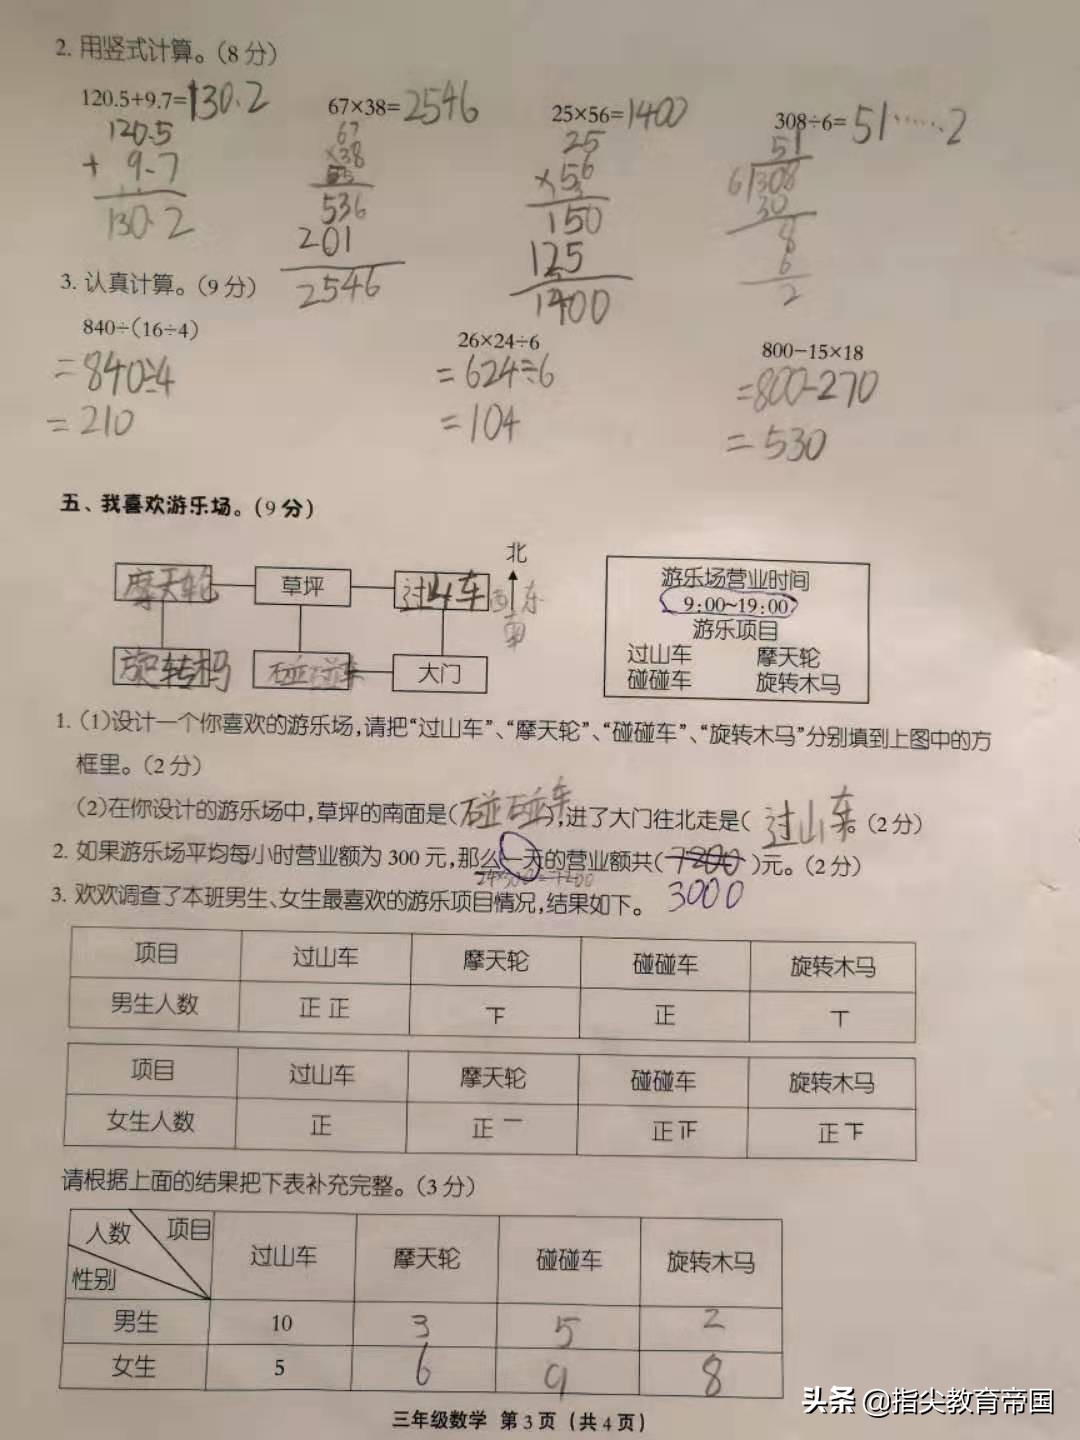 2. 用竖式计算。(8分)
120.5+9.7=130.2 67×38=2546 25×56=1400 308÷6=51……2
120.5 67 25 51
+ 9.7 ×38 ×56 6 308
130.2 536 150 30
201 125 8
2546 1400 6
2
3. 认真计算。(9分)
840÷(16÷4) 26×24÷6 800-15×18
=840÷4 =624÷6 =800-270
=210 =104 =530
五、我喜欢游乐场。(9分)
北
摩天轮 草坪 过山车 西 东
南
旋转木马 碰碰车 大门
游乐场营业时间
9:00~19:00
游乐项目
过山车 摩天轮
碰碰车 旋转木马
1. (1)设计一个你喜欢的游乐场,请把“过山车”、“摩天轮”、“碰碰车”、“旋转木马”分别填到上图中的方
框里。(2分)
(2)在你设计的游乐场中,草坪的南面是(碰碰车),进了大门往北走是( 过山车。(2分)
2. 如果游乐场平均每小时营业额为 300 元,那么一天的营业额共(7200)元。(2分)
24×300=7200
3000
3. 欢欢调查了本班男生、女生最喜欢的游乐项目情况,结果如下。
项目 过山车 摩天轮 碰碰车 旋转木马
男生人数 正 正 下 正 丅
项目 过山车 摩天轮 碰碰车 旋转木马
女生人数 正 正 一 正 正 正 下
请根据上面的结果把下表补充完整。(3分)
人数 项目 性别 过山车 摩天轮 碰碰车 旋转木马
男生 10 3 5 2
女生 5 6 9 8
三年级数学 第3页(共4页)
头条 @指尖教育帝国